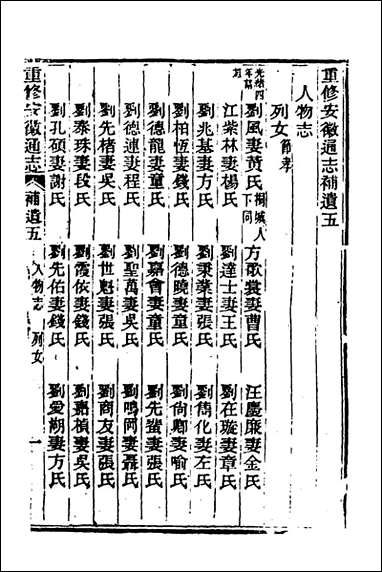 重修安徽通志補遺五
人物志
列女節孝
光緒四年冩
旌
劉風妻黄氏桐城人下同 方歌裳妻曹氏 汪慶廉妻金氏
江棐林妻楊氏 劉達士妻王氏 劉在璇妻章氏
劉兆基妻方氏 劉秉葉妻張氏 劉儁化妻左氏
劉柏恆妻錢氏 劉德曉妻童氏 劉尙卿妻喻氏
劉德龍妻童氏 劉嘉會妻童氏 劉先蜚妻張氏
劉德速妻程氏 劉聖萬妻吳氏 劉鳴岡妻聶氏
劉先楮妻吳氏 劉世魁妻張氏 劉商友妻張氏
劉泰珠妻段氏 劉霞依妻錢氏 劉嘉楨妻吳氏
劉孔碩妻謝氏 劉先佑妻錢氏 劉愛湖妻方氏
重修安徽通志 補遺五 人物志 列女 一